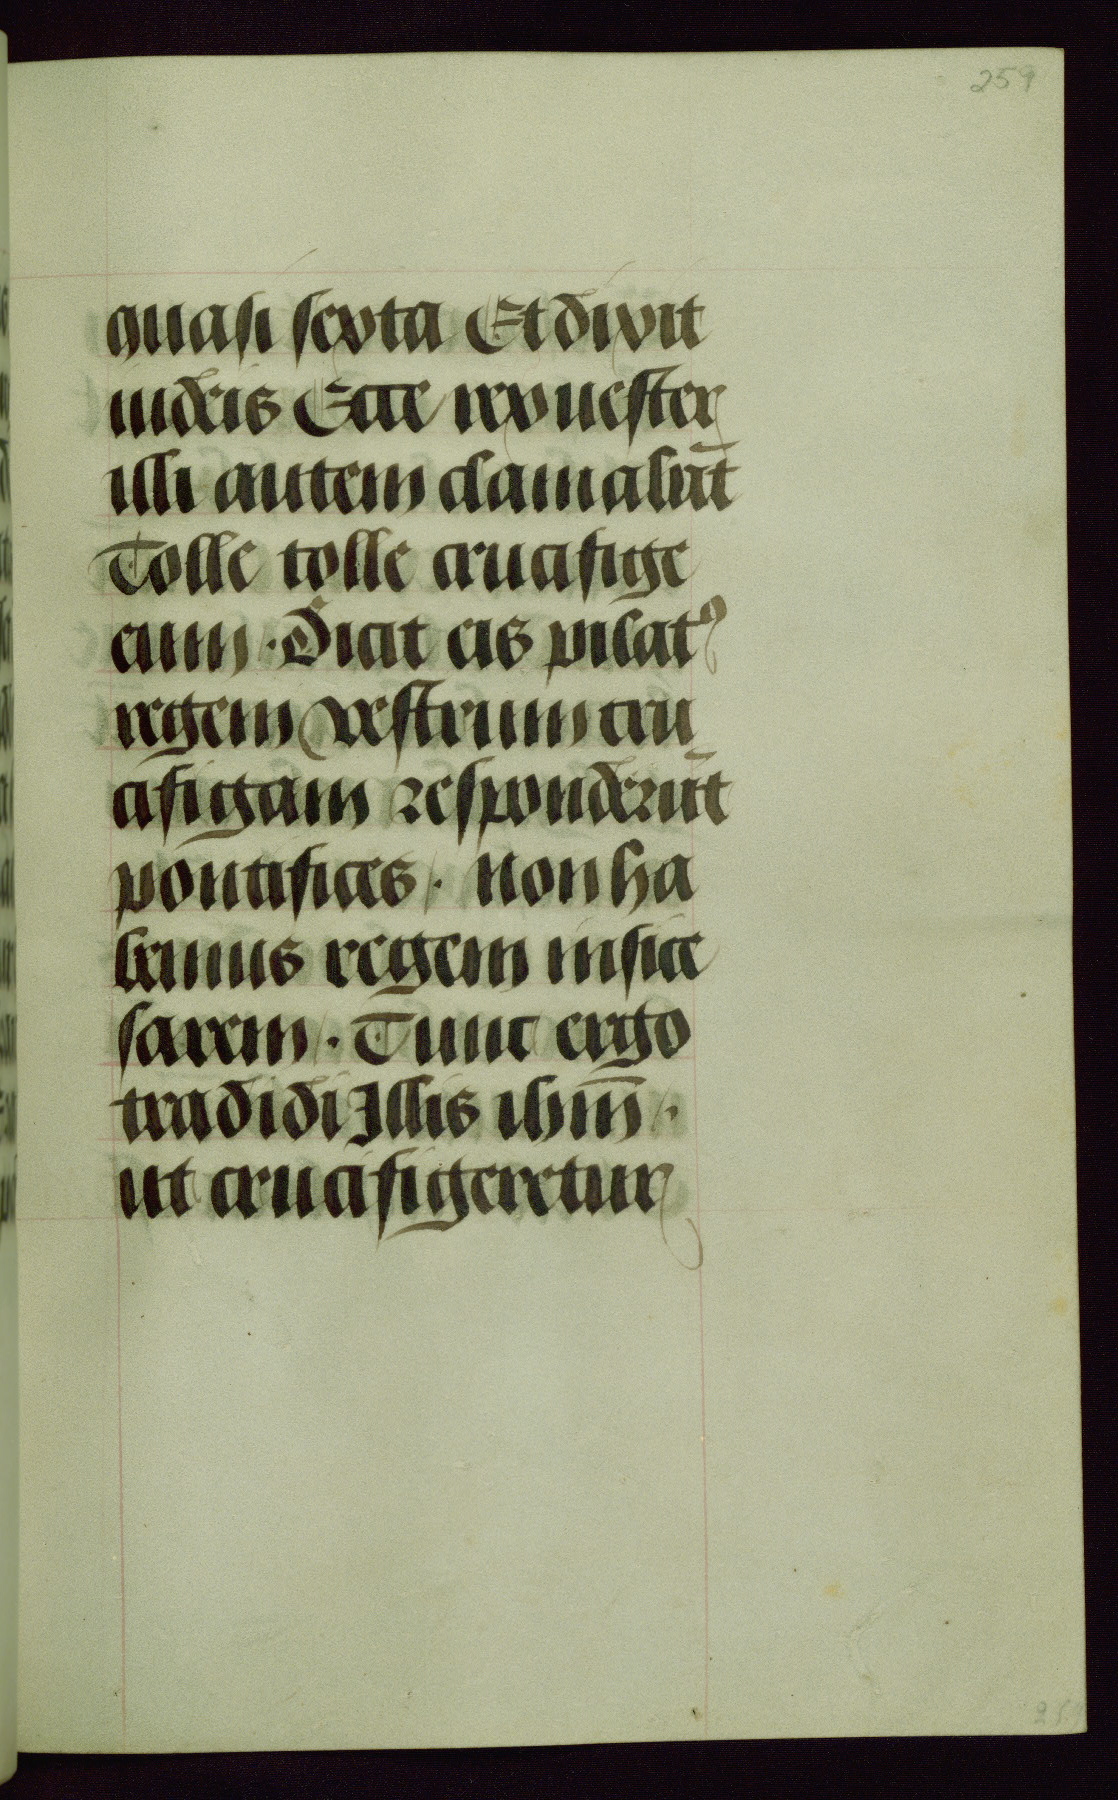 259
quasi sexta Et dixit
iudeis Ecce rex uester
illi autem clamabāt
Tolle tolle crucifige
eum · Dicit eis pilatꝰ
regem vestrum cru
cifigam responderūt
pontifices / · Non ha
bemus regem nisi ce
sarem / · Tunc ergo
tradidi Illis ihm̄ / ·
ut crucifigeretur